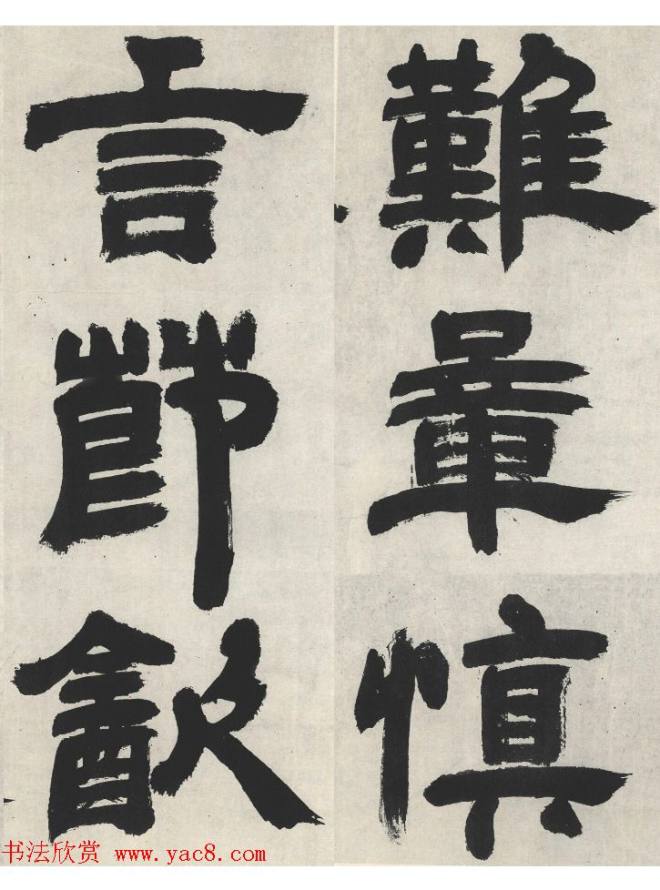 難量慎
言節㱃
书法欣赏 www.yac8.com